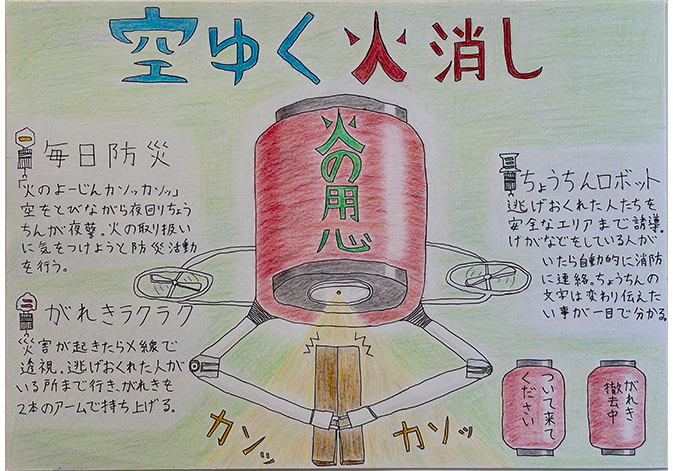 空ゆく火消し
火の用心
一
毎日防災
「火のよーじんカンッカンッ」
空をとびながら夜回りちょう
ちんが夜警。火の取り扱い
に気をつけようと防災活動
を行う。
二
がれきラクラク
災害が起きたらX線で
透視。逃げおくれた人がい
る所まで行き、がれきを
2本のアームで持ち上げる。
三
ちょうちんロボット
逃げおくれた人たちを
安全なエリアまで誘導。
けがなどをしている人が
いたら自動的に消防
に連絡。ちょうちんの
文字は変わり伝えた
い事が一目で分かる。
カンッ
カンッ
ついて来て
ください
がれき
撤去中